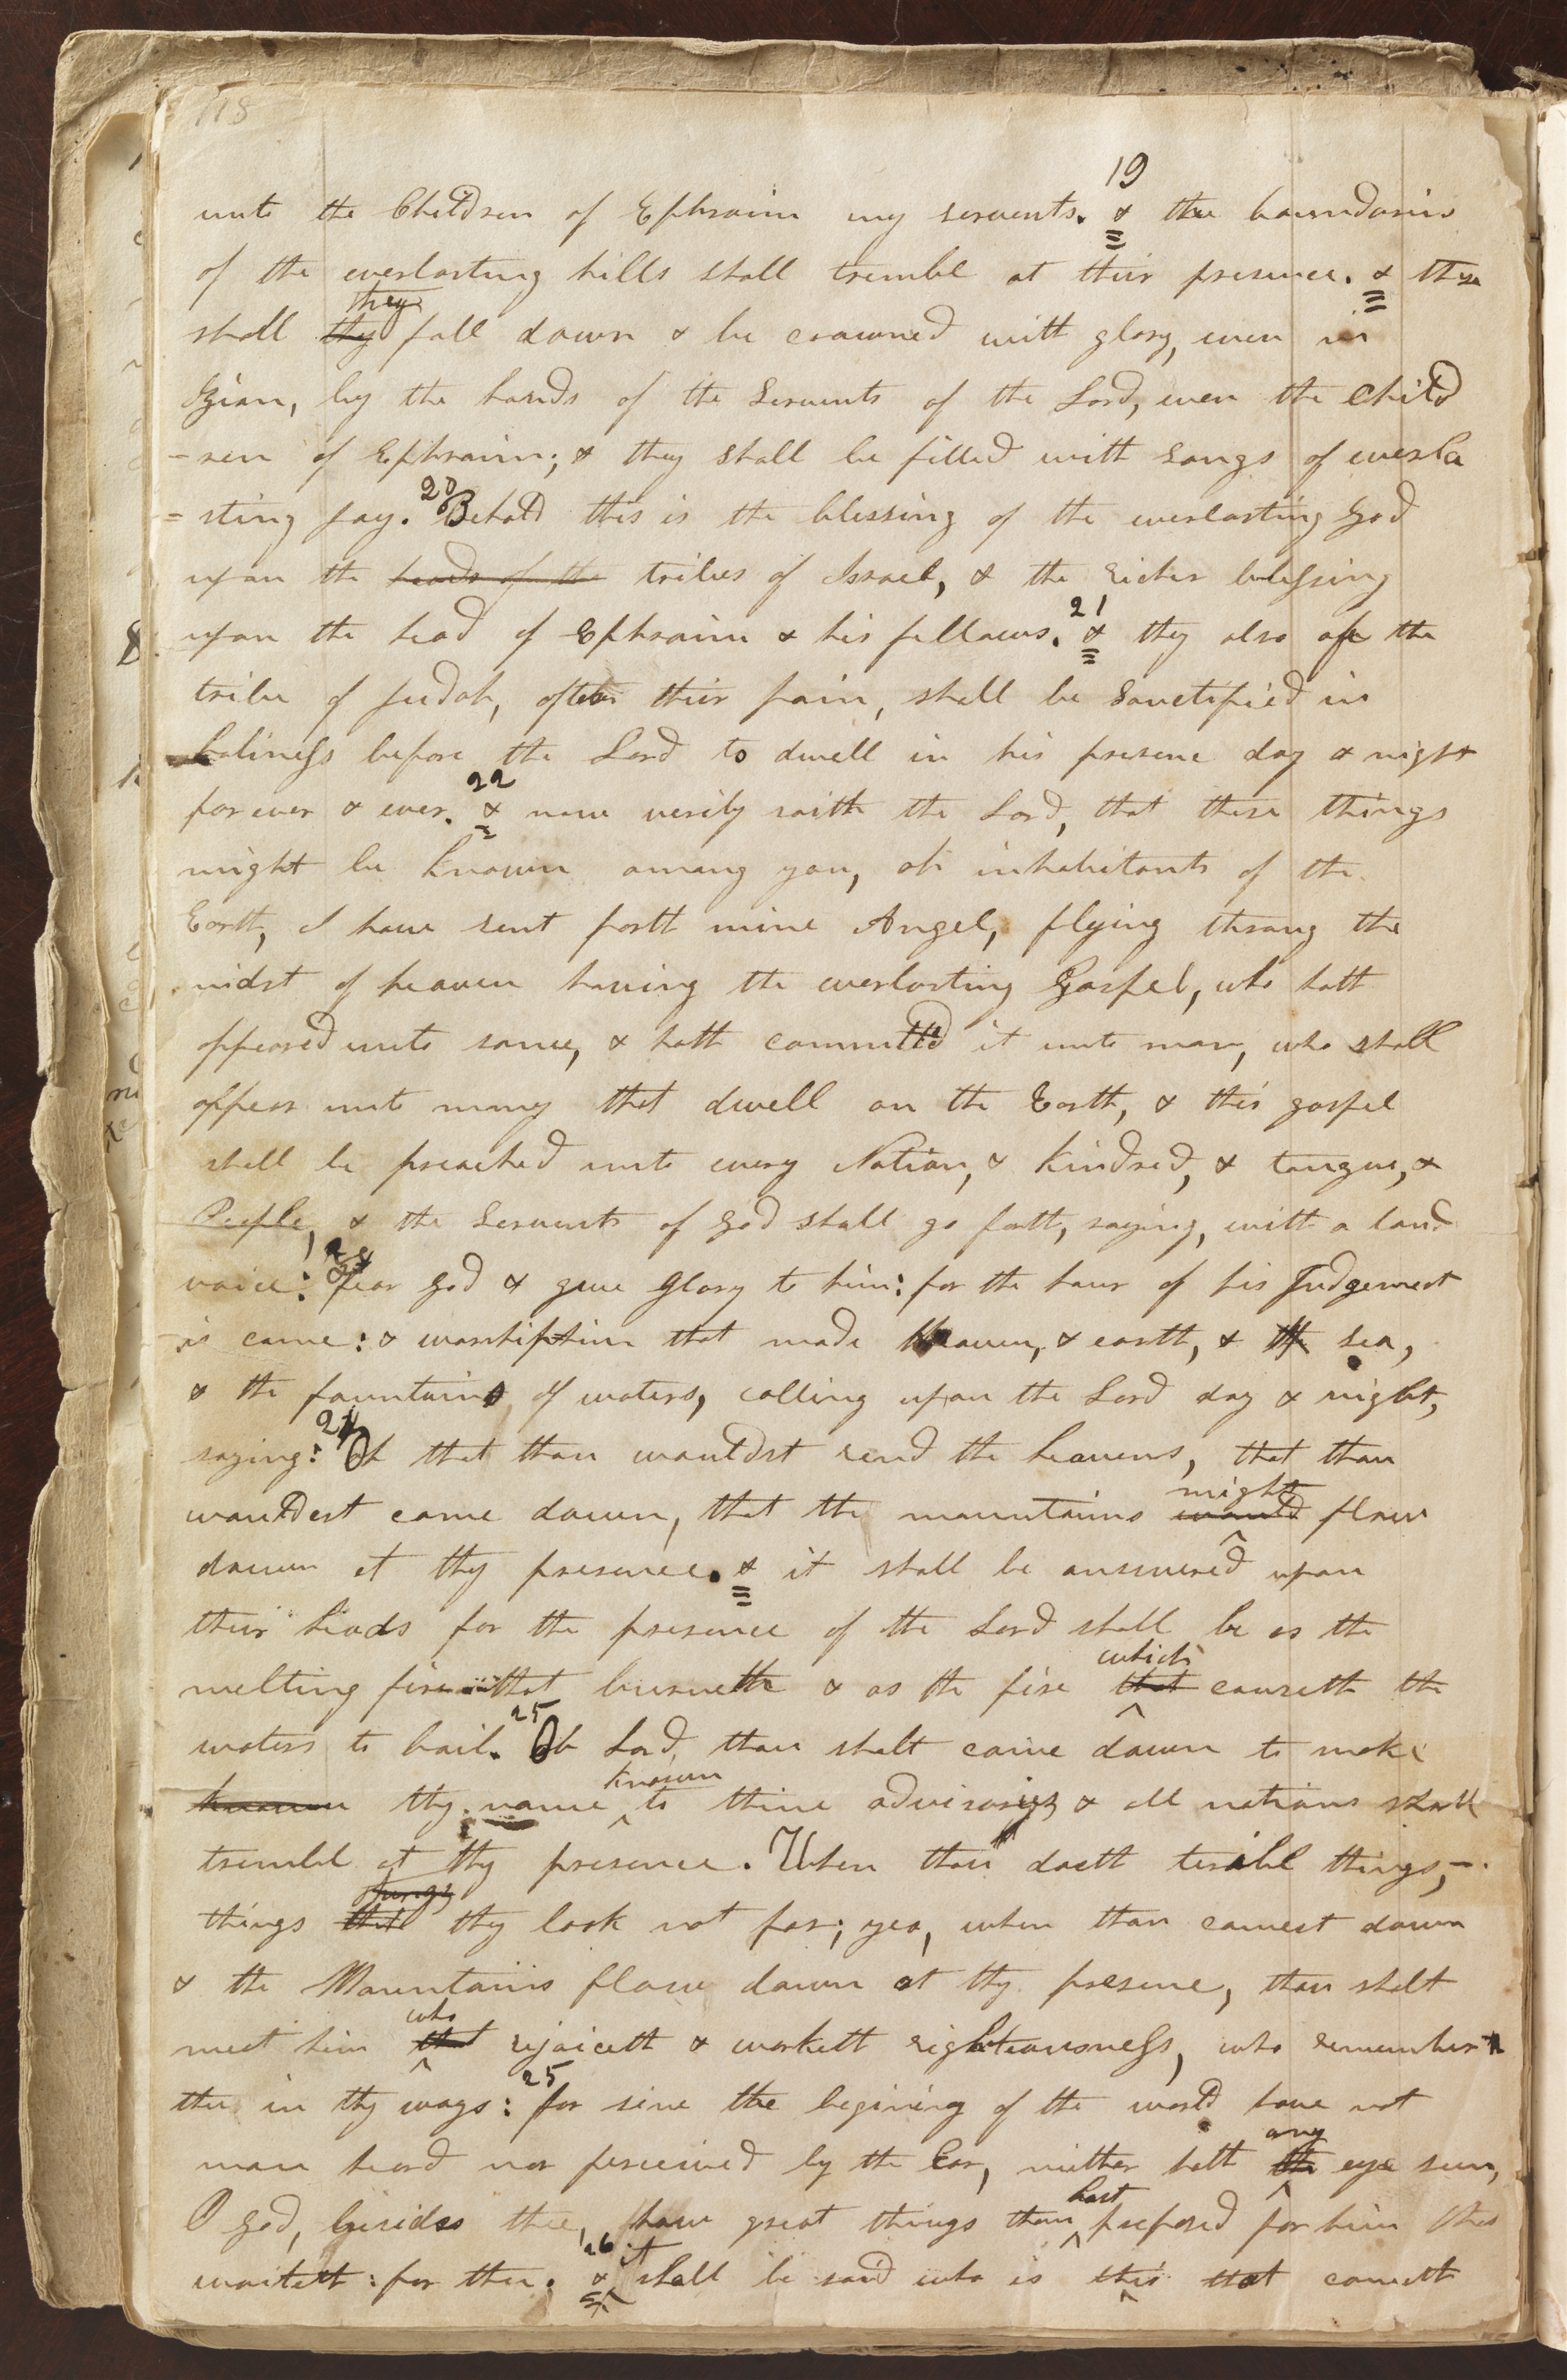 118
unto the Children of Ephraim my servents. 19 & the boundaries
of the everlasting hills shall tremble at their presence. & then
shall thy they fall down & be crowned with glory, even in
Zion, by the hands of the Servents of the Lord, even the Child
-ren of Ephraim; & they shall be filled with songs of everla
=sting joy. 20 Behold this is the blessing of the everlasting God
upon the heads of the tribes of Israel, & the richer blessing
upon the head of Ephraim & his fellows. 21 & they also of the
tribe of Judah, after their pain, shall be sanctified in
holiness before the Lord to dwell in his presene day & night
forever & ever. 22 & now verily saith the Lord, that these things
might be known among you, oh inhabitants of the
Earth, I have sent forth mine Angel, flying throug the
midst of heaven having the everlasting Gospel, who hath
appeared unto some, & hath committed it unto man, who shall
appear unto many that dwell on the Earth, & this gospel
shall be preached unto every Nation, & kindred, & tongue, &
People, & the Servents of God shall go forth, saying, with a loud
voice: fear God & give glory to him: for the hour of his Judgement
is come: & worship him that made heaven, & earth, & the sea,
& the fountains of waters, calling upon the Lord day & night,
saying: 24 Oh that thou wouldst rend the heavens, that thou
wouldest come down, that the mountains would might flow
down at thy presence. & it shall be answered upon
their heads for the presence of the Lord shall be as the
melting fire that burneth & as the fire that which causeth the
waters to boil. 25 Oh Lord, thou shalt come down to make
known thy name known to thine adversarys & all nations shall
tremble at thy presence. When thou doeth terible things,
things that they look not for; yea, when thou comest down
& the Mountains flow down at thy presene, thou shalt
meet him that who rejoiceth & worketh righteousness, who remember
thee in thy ways: 25 for sine the begining of the world have not
man heard nor perceived by the Ear, neither hath the any eye seen,
O God, besides thee, how great things thou hast prepared for him that
waiteth for thee. 26 & it shall be said who is this that cometh